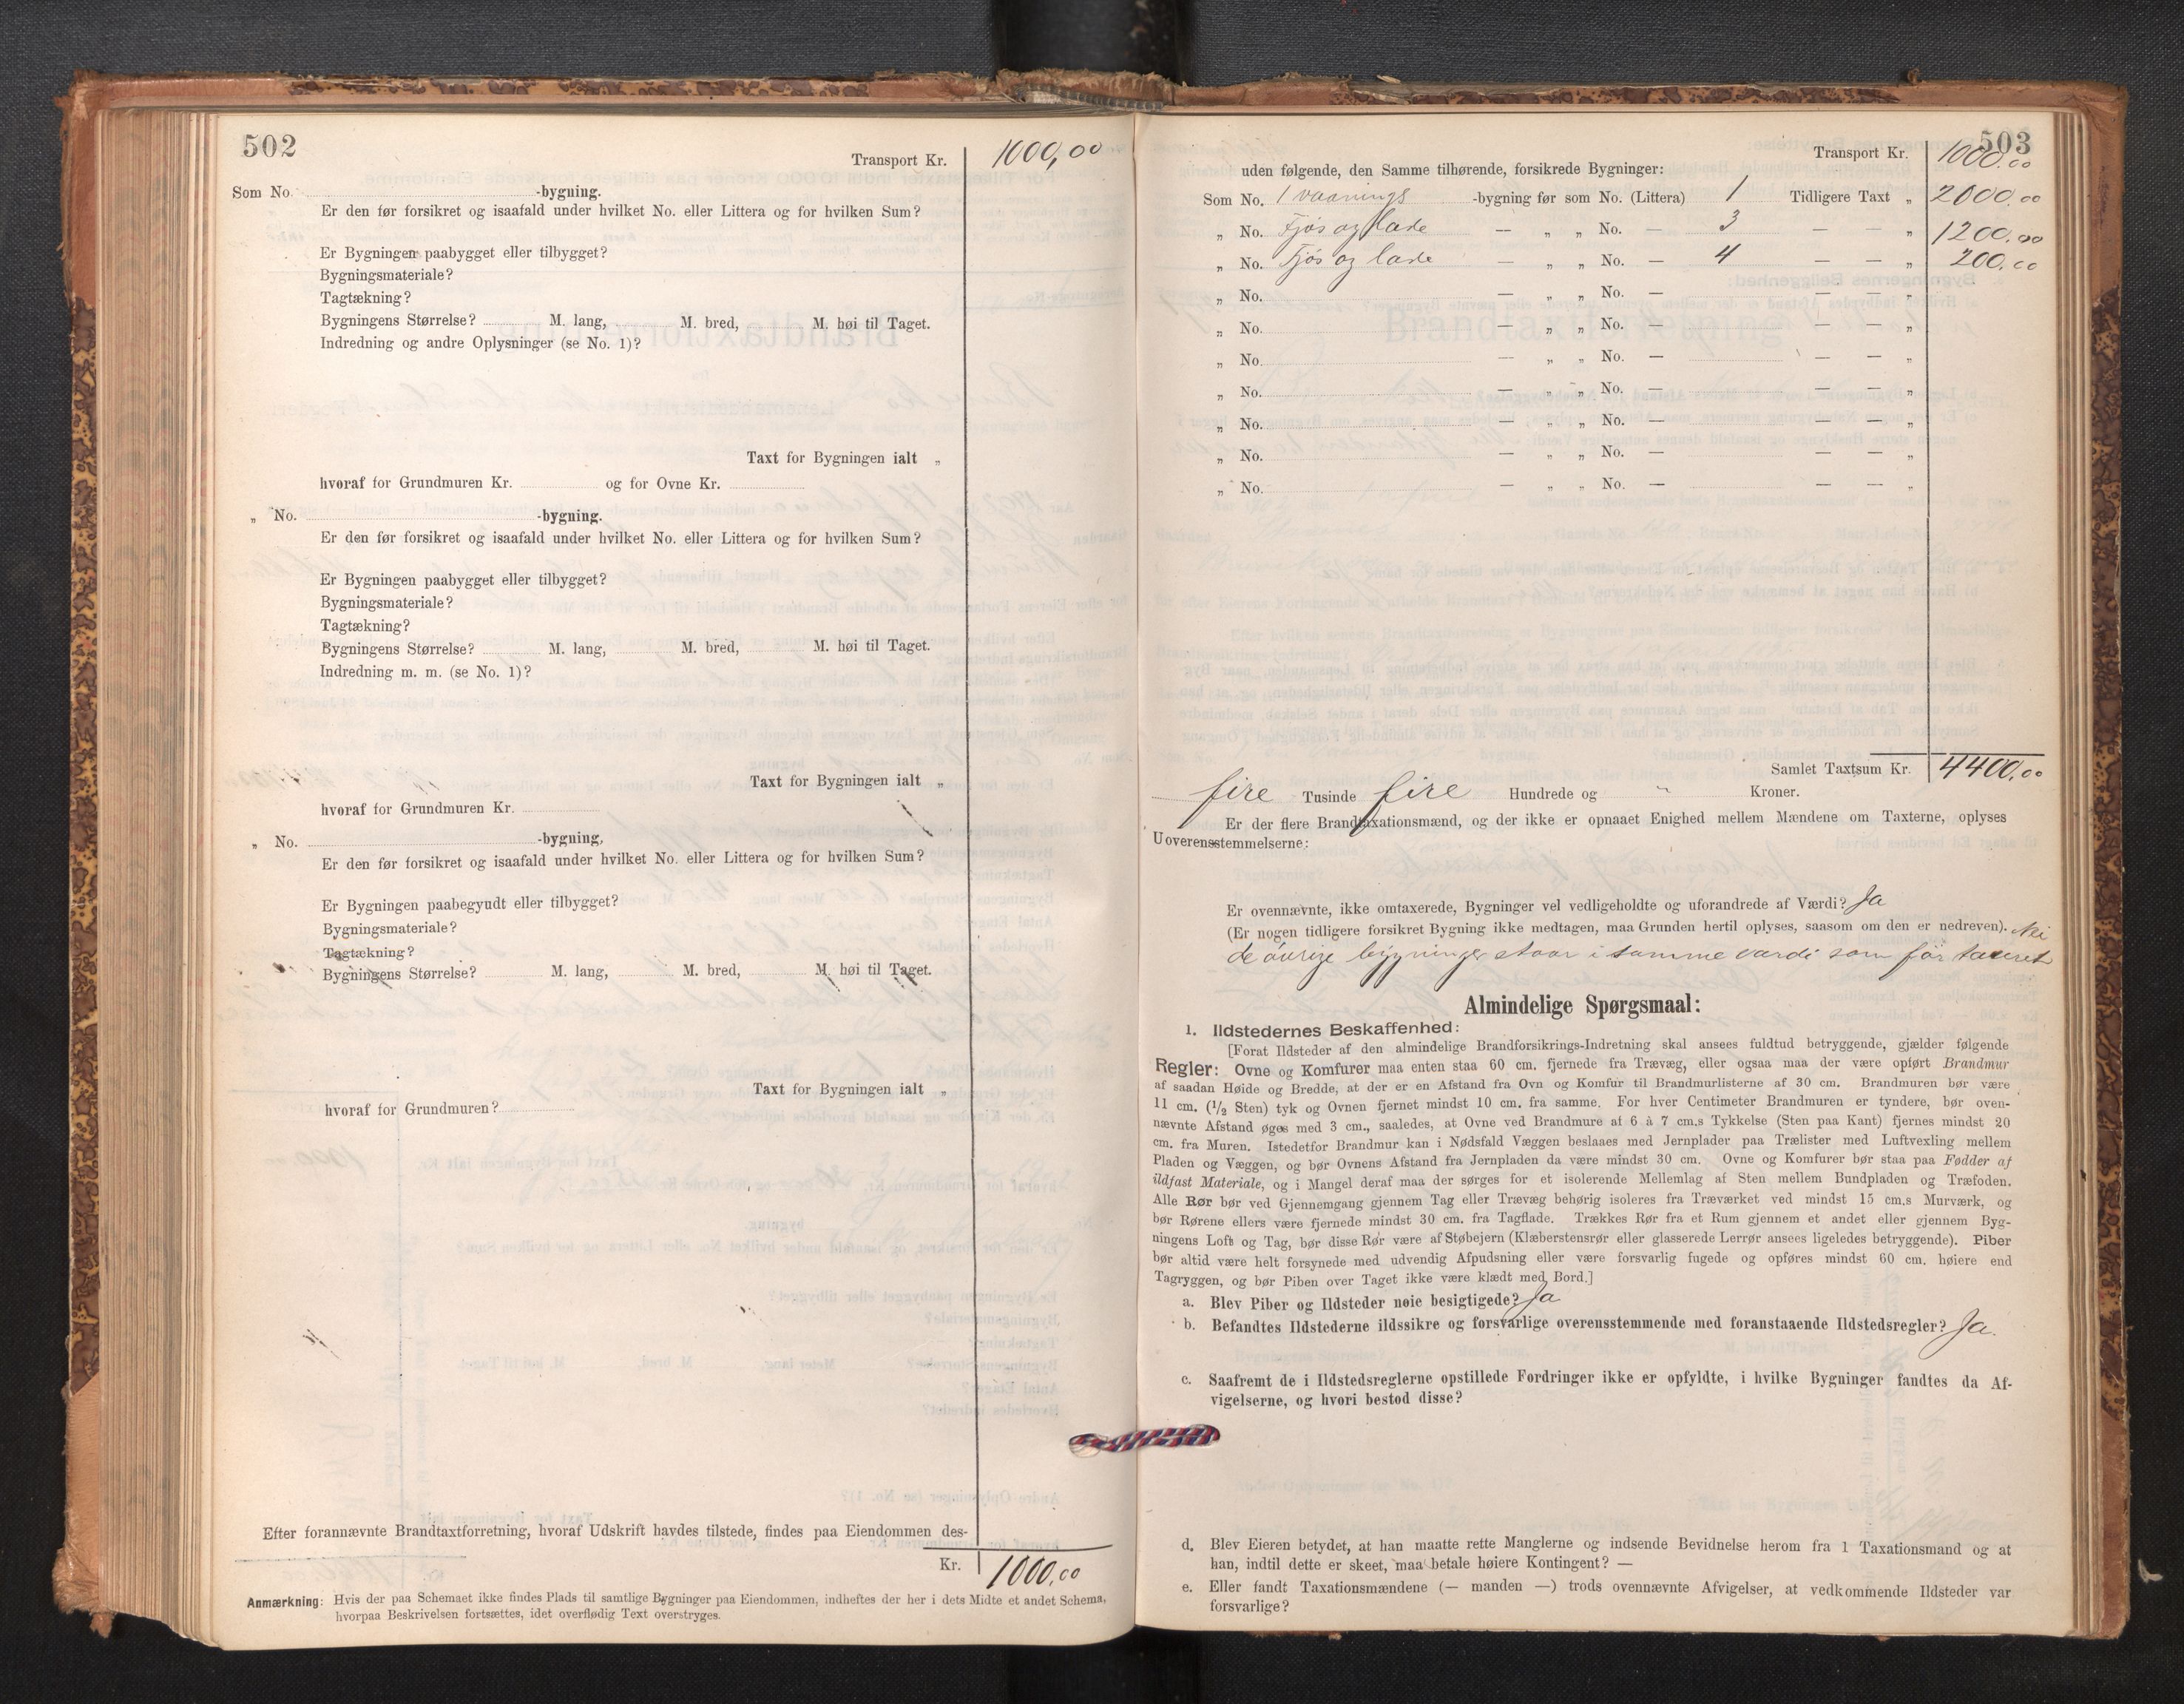 502
Transport Kr. 1000,00
Som No. -bygning.
Er den før forsikret og isaafald under hvilket No. eller Littera og for hvilken Sum?
Er Bygningen paabygget eller tilbygget?
Bygningsmateriale?
Tagtækning?
Bygningens Størrelse? M. lang, M. bred, M. høi til Taget.
Indredning og andre Oplysninger (se No. 1)?
Taxt for Bygningen ialt „
hvoraf for Grundmuren Kr. og for Ovne Kr.
„ No. -bygning.
Er den før forsikret og isaafald under hvilket No. eller Littera og for hvilken Sum?
Er Bygningen paabygget eller tilbygget?
Bygningsmateriale?
Tagtækning?
Bygningens Størrelse? M. lang, M. bred, M. høi til Taget.
Indredning m. m. (se No. 1)?
Taxt for Bygningen ialt „
hvoraf for Grundmuren Kr.
„ No. -bygning,
Er den før forsikret og isaafald under hvilket No. eller Littera og for hvilken Sum?
Er Bygningen paabegyndt eller tilbygget?
Bygningsmateriale?
Tagtækning?
Bygningens Størrelse? M. lang, M. bred, M. høi til Taget.
Taxt for Bygningen ialt „
hvoraf for Grundmuren?
Efter forannævnte Brandtaxtforretning, hvoraf Udskrift havdes tilstede, findes paa Eiendommen des-
Kr. 1000,00
Anmærkning: Hvis der paa Schemaet ikke findes Plads til samtlige Bygninger paa Eiendommen, indheftes der her i dets Midte et andet Schema,
hvorpaa Beskrivelsen fortsættes, idet overflødig Text overstryges.
503
Transport Kr. 1000,00
uden følgende, den Samme tilhørende, forsikrede Bygninger:
Som No. 1 vaanings -bygning før som No. (Littera) 1 Tidligere Taxt „ 2000,00
„ No. Fjøs og lade — „ „ No. — 3 — — „ 1200,00
„ No. Fjøs og lade — „ „ No. — 4 — — „ 200,00
„ No. — „ „ No. — — — „
„ No. — „ „ No. — — — „
„ No. — „ „ No. — — — „
„ No. — „ „ No. — — — „
„ No. — „ „ No. — — — „
„ No. — „ „ No. — — — „
„ No. — „ „ No. — — — „
Samlet Taxtsum Kr. 4400,00
fire Tusinde fire Hundrede og „ Kroner.
Er der flere Brandtaxationsmænd, og der ikke er opnaaet Enighed mellem Mændene om Taxterne, oplyses
Uoverensstemmelserne:
Er ovennævnte, ikke omtaxerede, Bygninger vel vedligeholdte og uforandrede af Værdi? Ja
(Er nogen tidligere forsikret Bygning ikke medtagen, maa Grunden hertil oplyses, saasom om den er nedreven). Nei
de øvrige bygninger staar i samme værdi som før taxeret
Almindelige Spørgsmaal:
1. Ildstedernes Beskaffenhed:
[Forat Ildsteder af den almindelige Brandforsikrings-Indretning skal ansees fuldtud betryggende, gjælder følgende
Regler: Ovne og Komfurer maa enten staa 60 cm. fjernede fra Trævæg, eller ogsaa maa der være opført Brandmur
af saadan Høide og Bredde, at der er en Afstand fra Ovn og Komfur til Brandmurlisterne af 30 cm. Brandmuren bør være
11 cm. (1/2 Sten) tyk og Ovnen fjernet mindst 10 cm. fra samme. For hver Centimeter Brandmuren er tyndere, bør oven-
nævnte Afstand øges med 3 cm., saaledes, at Ovne ved Brandmure af 6 à 7 cm.s Tykkelse (Sten paa Kant) fjernes mindst 20
cm. fra Muren. Istedetfor Brandmur kan i Nødsfald Væggen beslaaes med Jernplader paa Trælister med Luftvexling mellem
Pladen og Væggen, og bør Ovnens Afstand fra Jernpladen da være mindst 30 cm. Ovne og Komfurer bør staa paa Fødder af
ildfast Materiale, og i Mangel deraf maa der sørges for et isolerende Mellemlag af Sten mellem Bundpladen og Træfoden.
Alle Rør bør ved Gjennemgang gjennem Tag eller Trævæg behørig isoleres fra Træværket ved mindst 15 cm.s Murværk, og
bør Rørene ellers være fjernede mindst 30 cm. fra Tagflade. Trækkes Rør fra et Rum gjennem et andet eller gjennem Byg-
ningens Loft og Tag, bør disse Rør være af Støbejern (Klæberstensrør eller glasserede Lerrør ansees ligeledes betryggende). Piber
bør altid være helt forsynede med udvendig Afpudsning eller være forsvarlig fugede og opføres mindst 60 cm. høiere end
Tagryggen, og bør Piben over Taget ikke være klædt med Bord.]
a. Blev Piber og Ildsteder nøie besigtigede? Ja
b. Befandtes Ildstederne ildssikre og forsvarlige overensstemmende med foranstaaende Ildstedsregler? Ja.
c. Saafremt de i Ildstedsreglerne opstillede Fordringer ikke er opfyldte, i hvilke Bygninger fandtes da Af-
vigelserne, og hvori bestod disse?
d. Blev Eieren betydet, at han maatte rette Manglerne og indsende Bevidnelse herom fra 1 Taxationsmand og at
han, indtil dette er skeet, maa betale høiere Kontingent? —
e. Eller fandt Taxationsmændene (— manden —) trods ovennævnte Afvigelser, at vedkommende Ildsteder var
forsvarlige?